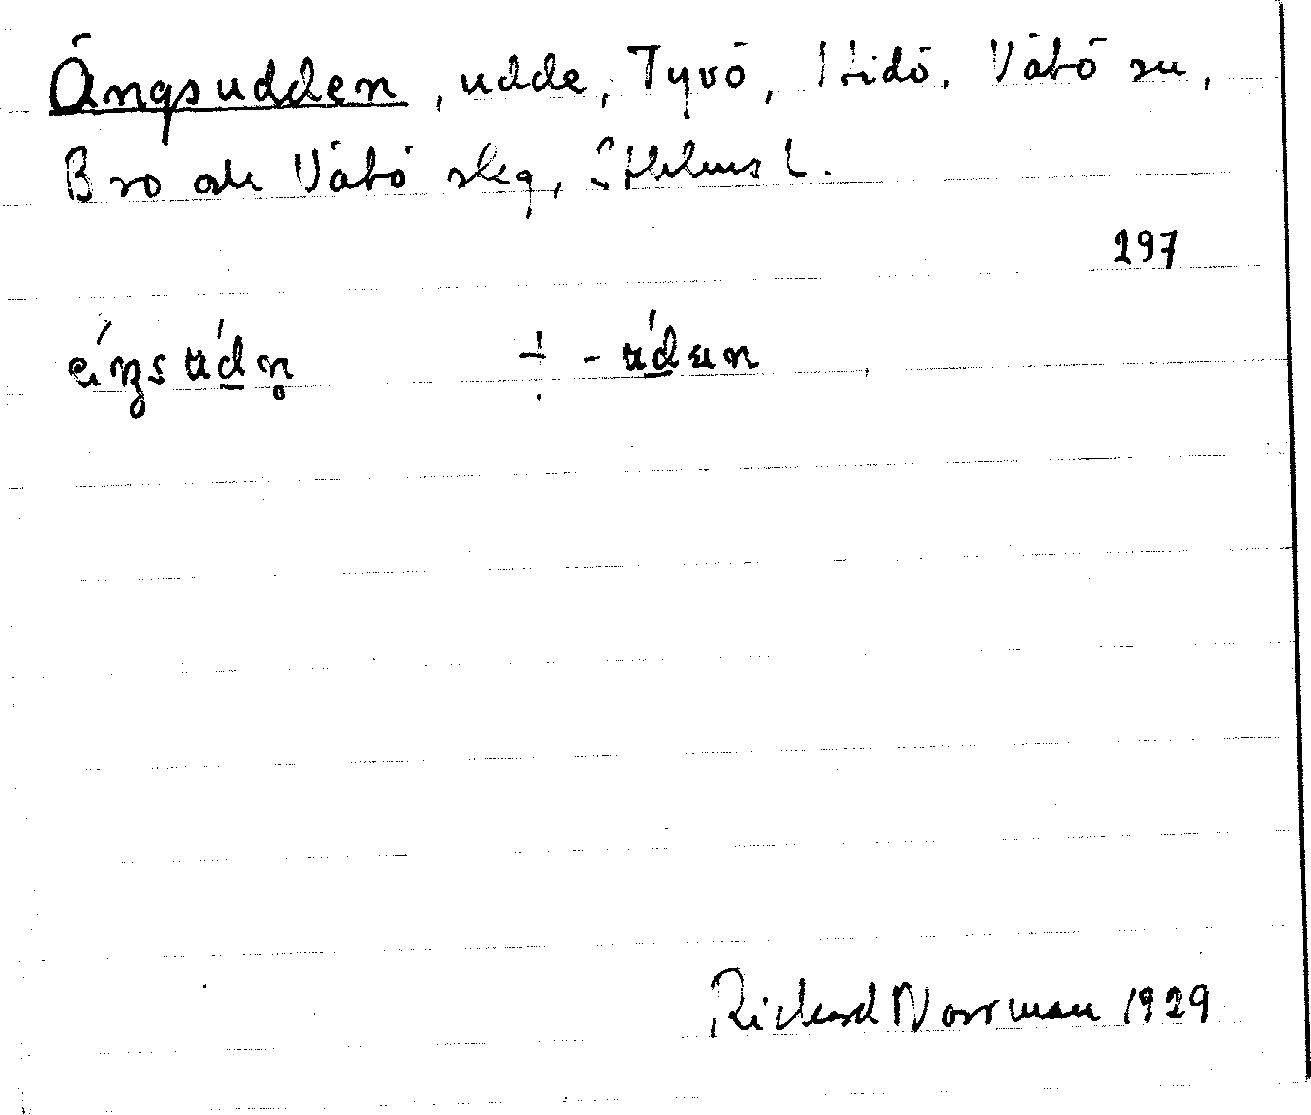 Ängsudden, udde, Tyvö, Hidö, Vätö sn,
Bro och Vätö skeg, Sthlms l.
297
-úden
Rickard Norrman 1929